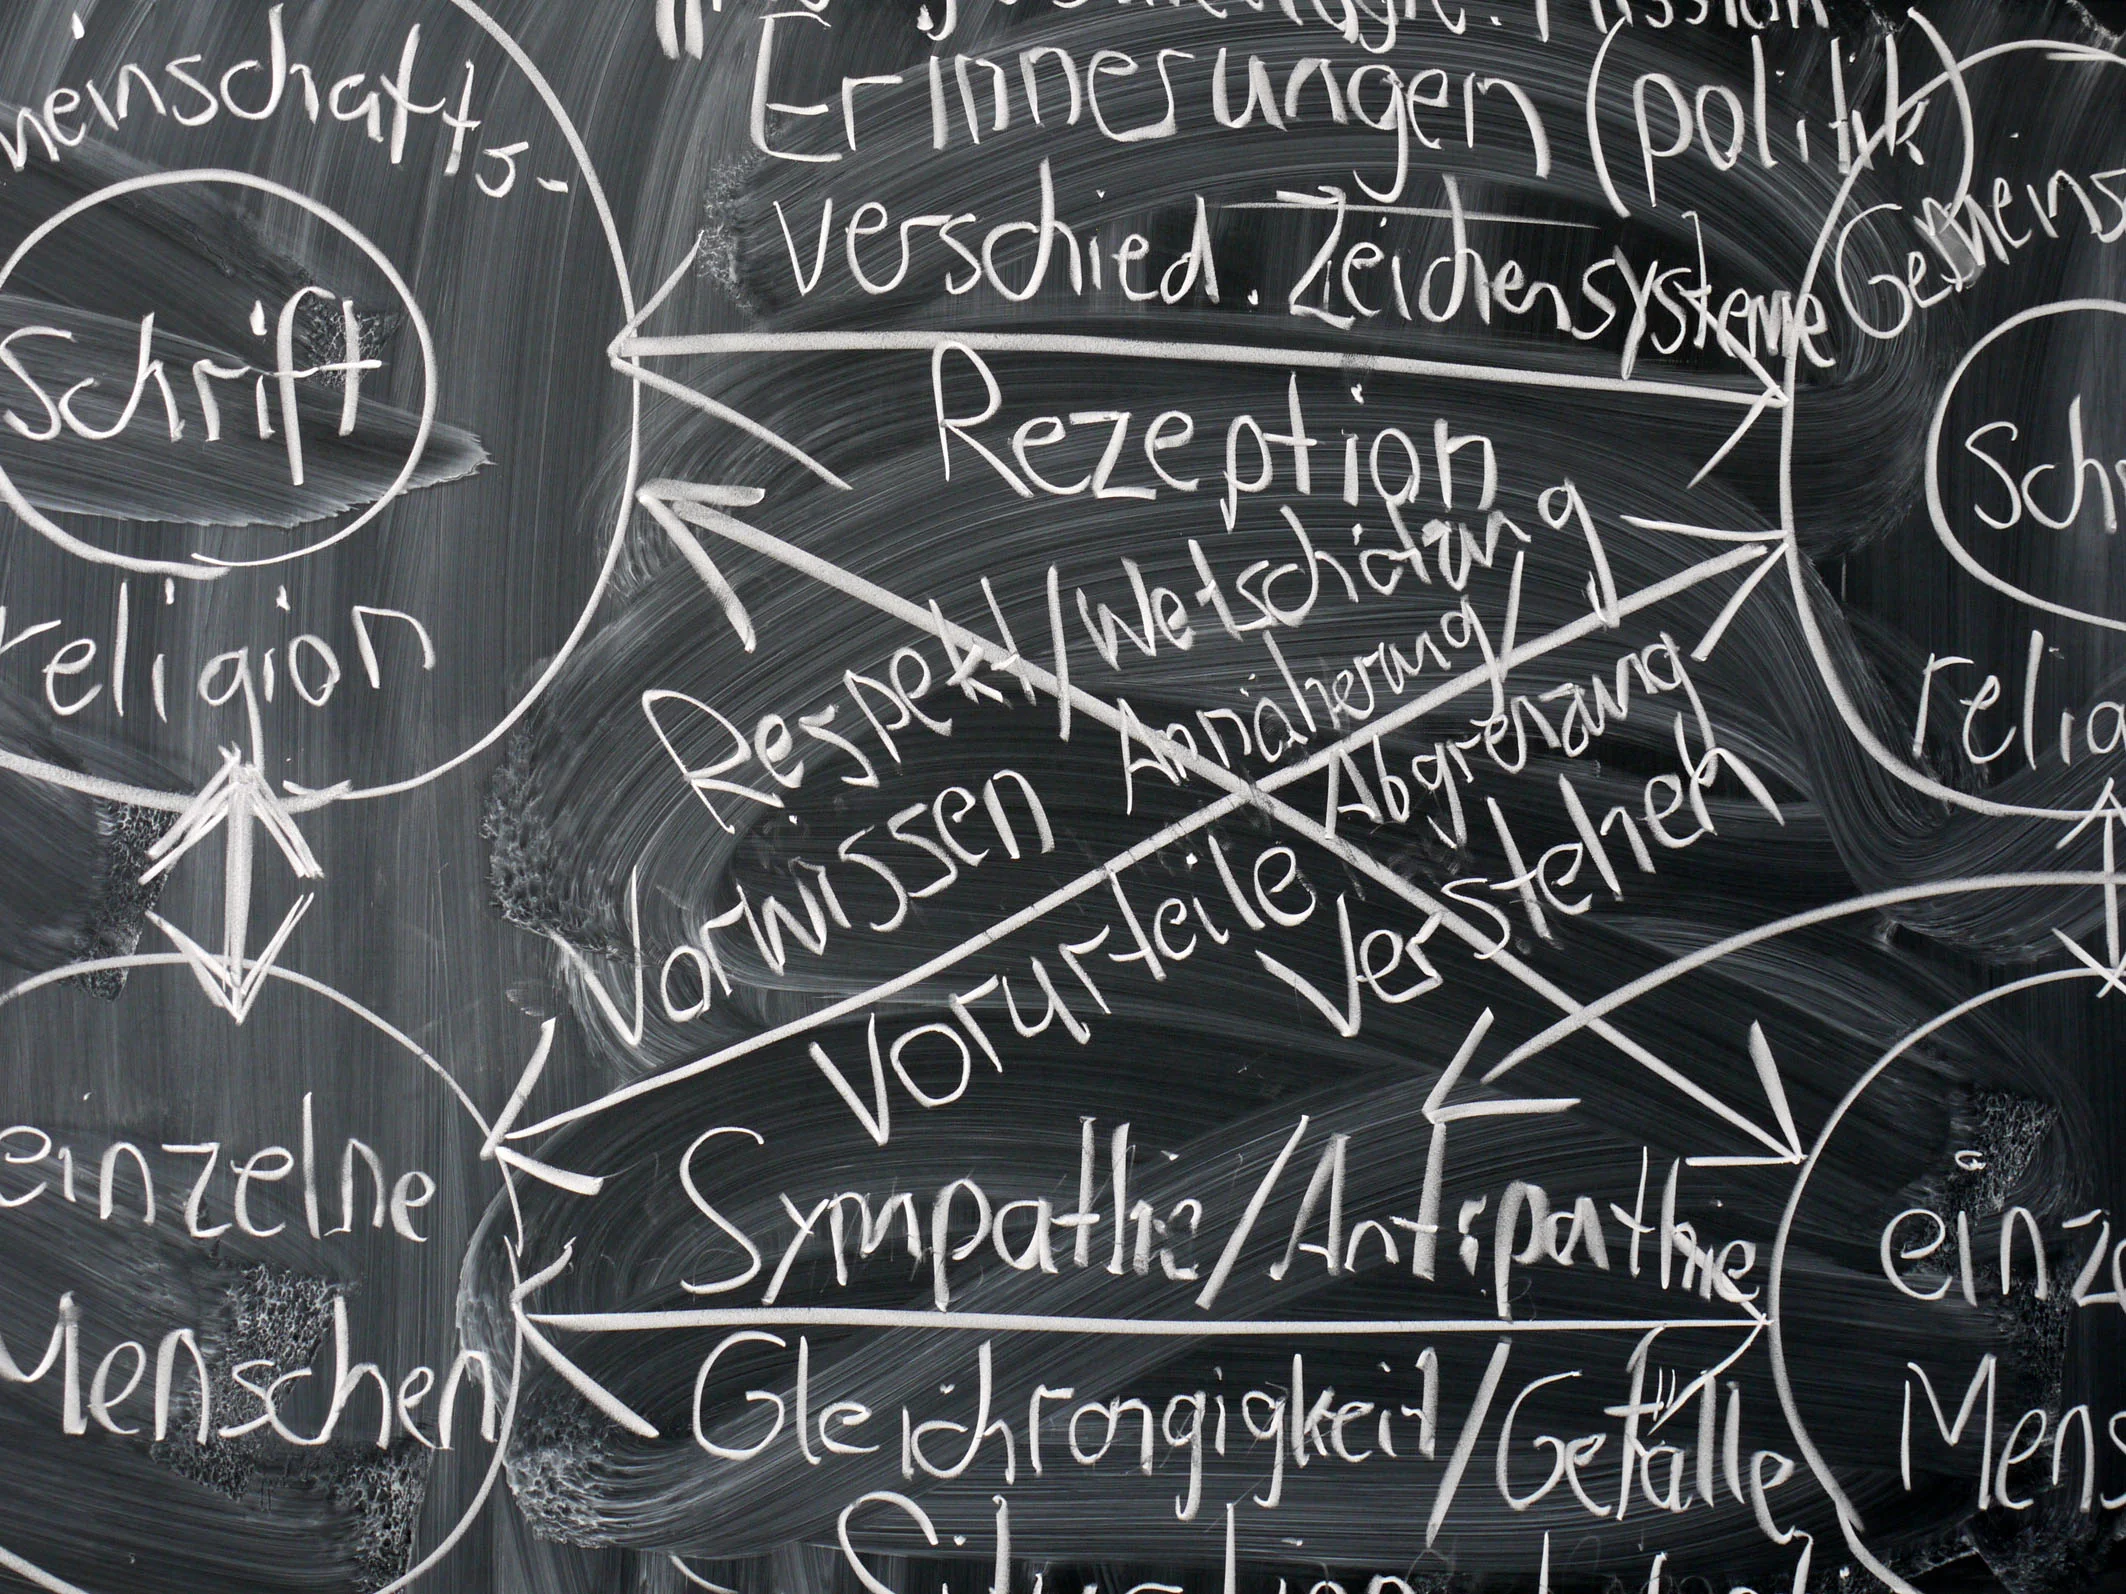 Erinnerungen (politik)
verschied. Zeichensysteme
Rezeption
Respekt/Wetschätzung
Annäherung/
Abgrenzung
Vorwissen
Vorurteile
Verstehen
Sympathie/Antipathie
Gleichrangigkeit/Gefälle
meinschafts-
Schrift
religion
einzelne
Menschen
Gemeins
Sch
relig
einze
Mens